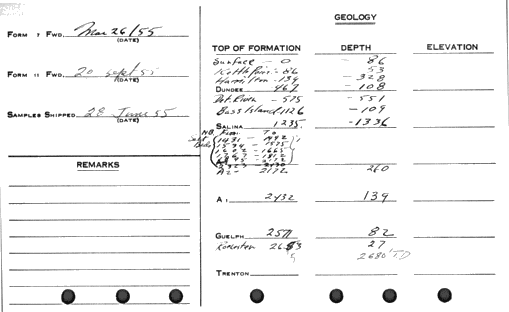 FORM 7 FWD. Mar 26/55
(DATE)
FORM 11 FWD. 20 Sept 55
(DATE)
SAMPLES SHIPPED 28 June 55
(DATE)
REMARKS
GEOLOGY
TOP OF FORMATION DEPTH ELEVATION
Surface - 0 - 86
Kettle Point - 86 - 53
Hamilton - 139 - 328
DUNDEE 467 - 108
Det. River - 575 - 551
Bass Island 1126 - 109
SALINA 1235 - 1336
From To
Salt Beds
A2 - 2172 260
A1 2432 139
GUELPH 2571 82
Rochester 2653 27
2680 TD
TRENTON